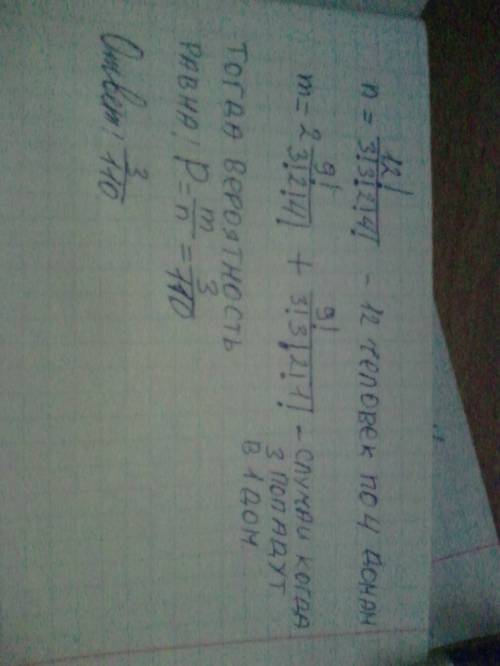 n = 12! / 3!3!2!4! - 12 человек по 4 домам
m = 2 9! / 3!2!4! + 9! / 3!3!2!1! - случаи когда 3 попадут в 1 дом
тогда вероятность
равна: P = m/n = 3/110
Ответ: 3/110